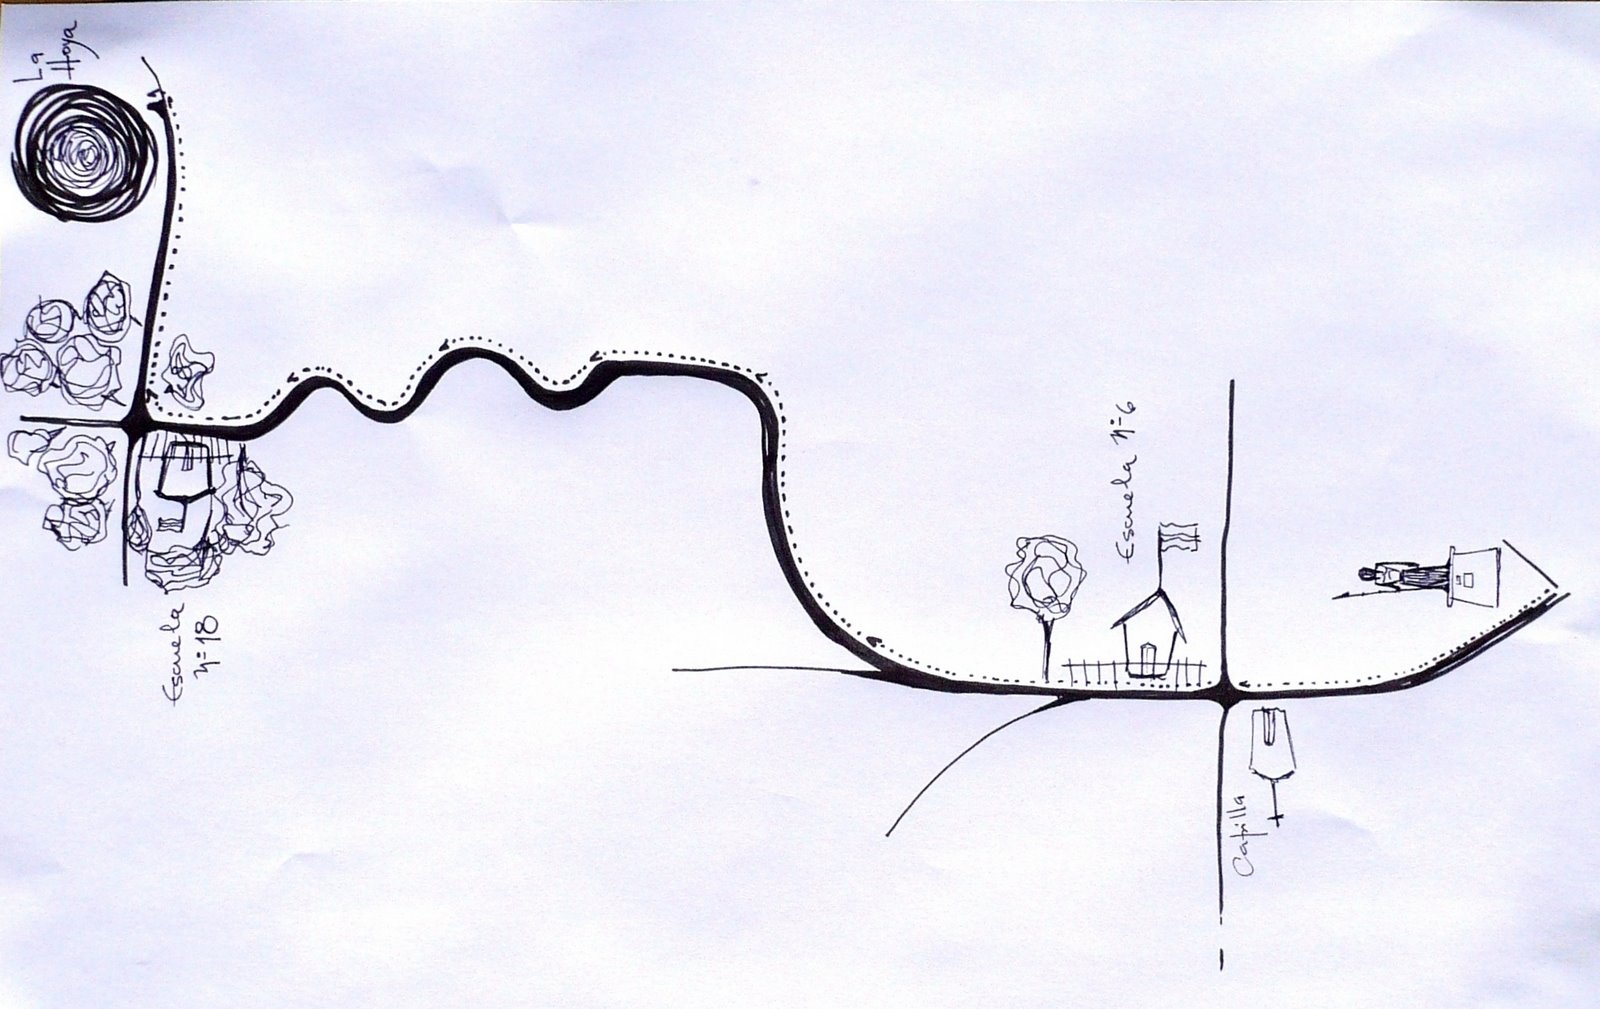 La
Hoya
Escuela
n=18
Escuela n=6
Capilla